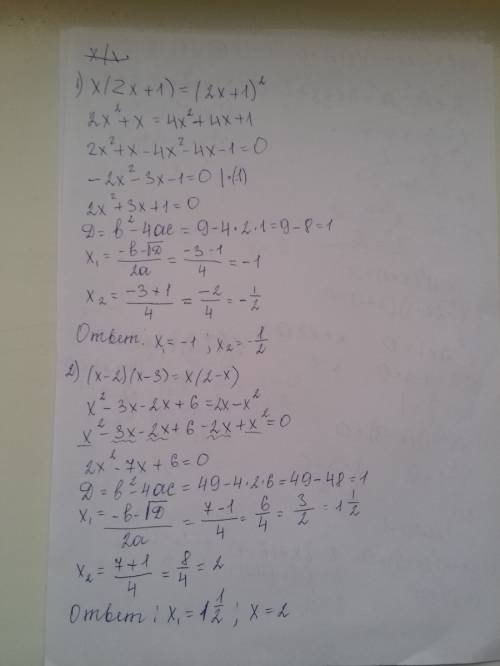 1) x(2x+1)=(2x+1)²
2x²+x=4x²+4x+1
2x²+x-4x²-4x-1=0
-2x²-3x-1=0 |·(1)
2x²+3x+1=0
D=b²-4ac=9-4·2·1=9-8=1
x₁=(-b-√D)/2a=(-3-1)/4=-1
x₂=(-3+1)/4=-2/4=-1/2
Ответ: x₁=-1; x₂=-1/2
2) (x-2)(x-3)=x(2-x)
x²-3x-2x+6=2x-x²
x²-3x-2x+6-2x+x²=0
2x²-7x+6=0
D=b²-4ac=49-4·2·6=49-48=1
x₁=(-b-√D)/2a=(7-1)/4=6/4=3/2=1 1/2
x₂=(7+1)/4=8/4=2
Ответ: x₁=1 1/2; x=2